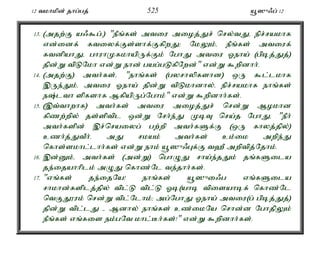 12 வமாமின் தாப்பத் 525 யூஸுஃப் 12
13. (அதற்கு யஃகூப்,) "நீங்கள் அவரை அழைத்துச் செல்வது, நிச்சயமாக
என்னைக் கவலைக்குள்ளாக்குகிறது; மேலும், நீங்கள் அவரைக்
கவனியாது, பாராமுகமாயிருக்கும் போது அவரை ஓநாய் (பிடித்துத்)
தின்று விடுமோ என்று நான் பயப்படுகிறேன்" என்று கூறினார்.
14. (அதற்கு) அவர்கள், "நாங்கள் (பலசாலிகளான) ஒரு கூட்டமாக
இருந்தும், அவரை ஓநாய் தின்று விடுமானால், நிச்சயமாக நாங்கள்
நஷ்டவாளிகளாக ஆகியிருப்போம்" என்று கூறினார்கள்.
15. (இவ்வாறாக) அவர்கள் அவரை அழைத்துச் சென்று ஆழமான
கிணற்றில் தள்ளிவிட ஒன்று சேர்ந்து முடிவு செய்த போது, "நீர்
அவர்களின் இச்செயலைப் பற்றி அவர்களுக்கு (ஒரு காலத்தில்)
உணர்த்துவீர். அது சமயம் அவர்கள் உம்மை அறிந்து
கொள்ளமாட்டார்கள் என்று நாம் யூஸுஃபுக்கு வஹீ அறிவித்தோம்.
16. இன்னும், அவர்கள் (அன்று) பொழுது சாய்ந்ததும் தங்களுடைய
தந்தையாரிடம் அழுது கொண்டே வந்தார்கள்.
17. "எங்கள் தந்தையே! நாங்கள் யூஸுஃபை எங்களுடைய
சாமான்களிடத்தில் விட்டு விட்டு ஓடி(யாடி விளையாடிக்) கொண்டே
வெகுதூரம் சென்று விட்டோம்; அப்போது ஓநாய் அவரை(ப் பிடித்துத்)
தின்று விட்டது - ஆனால் நாங்கள் உண்மையே சொன்ன போதிலும்
நீங்கள் எங்களை நம்பவே மாட்டீர்கள்!" என்று கூறினார்கள்.